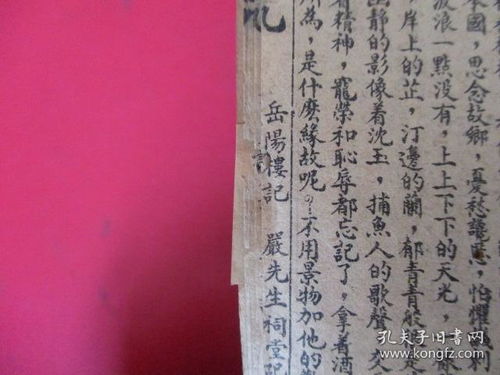 本國，思念故鄉，憂愁讒慝，怕懼
波浪一點沒有，上上下下的天光，一
岸上的芷，汀邊的蘭，郁青青
靜的影像着沈玉，捕魚人的歌聲，交
有精神，寵榮和恥辱都忘記了，拿着酒
為，是什麽緣故呢？不用景物加他的
岳陽樓記 嚴先生祠堂記
孔夫子旧书网
www.kongfz.com